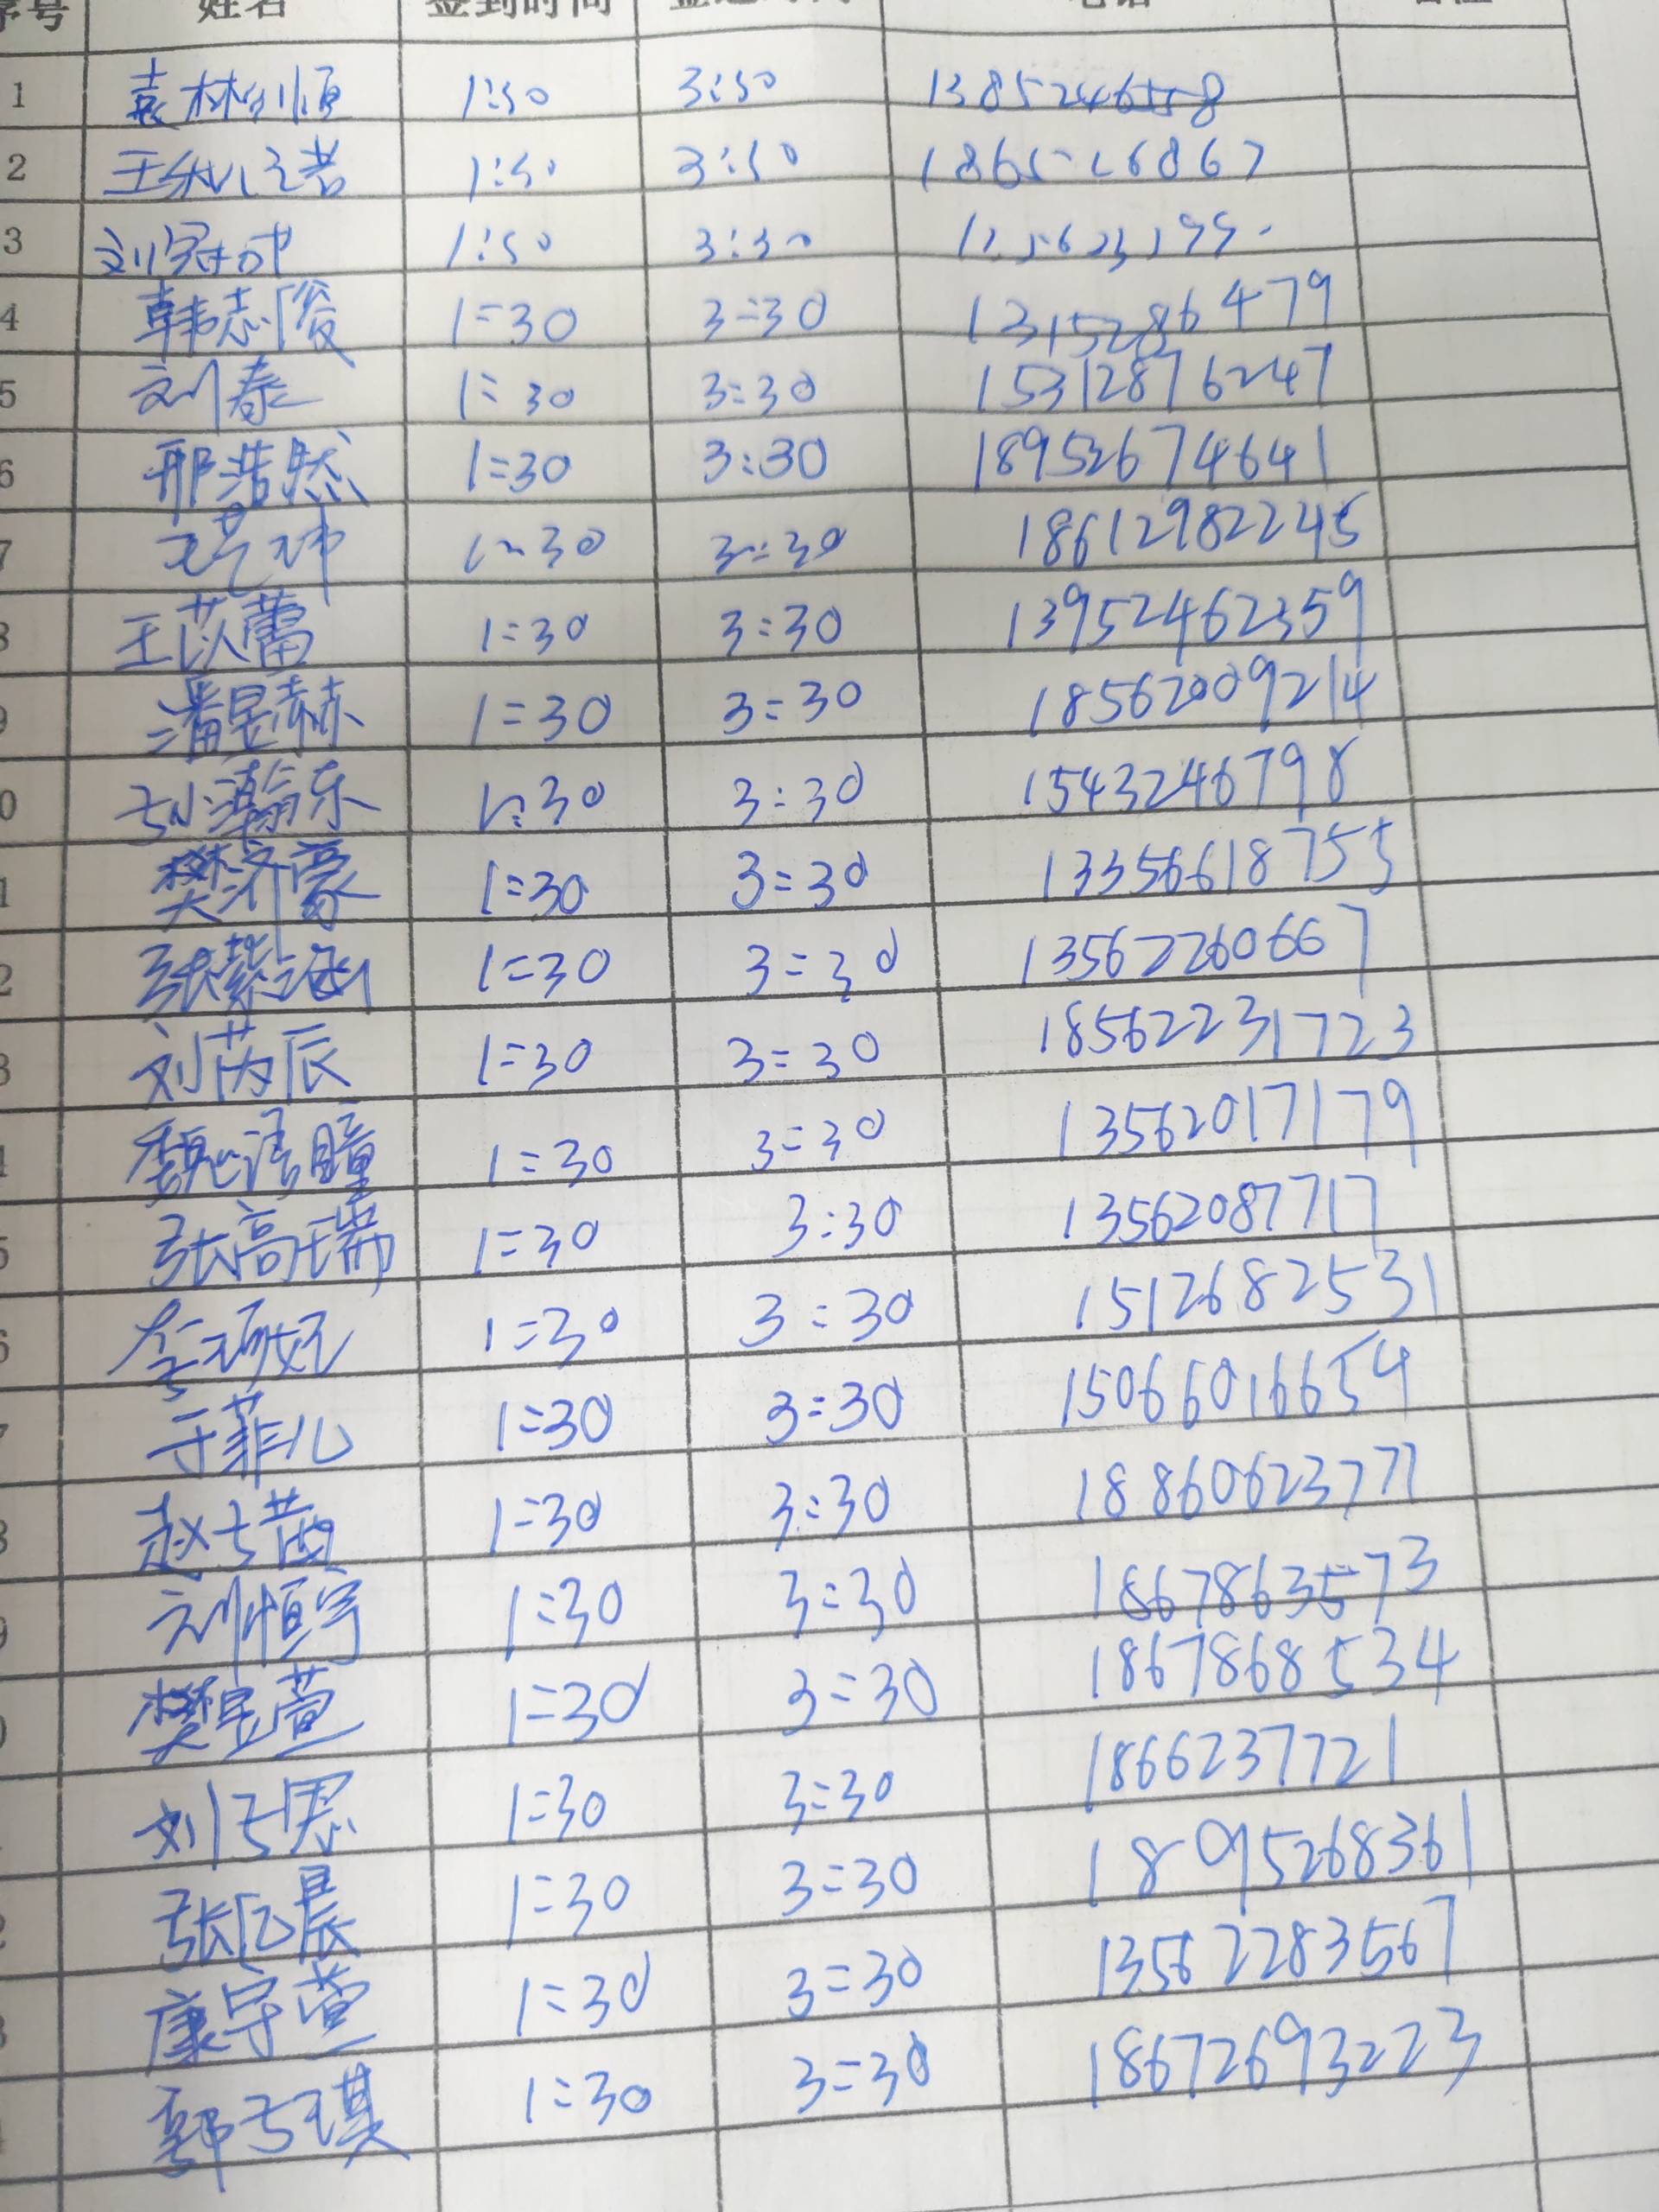 序号 姓名 签到时间 电话
1 袁林恒 1:50 3:50
2 1:50 3:50
3 刘冠 1:50 3:30
4 韩志俊 1:30 3:30 13152886479
5 刘泰 1:30 3:30 15312876247
6 邢浩然 1:30 3:30 18952674641
7 1:30 3:30 18612982245
王苡蕾 1:30 3:30 13952462359
潘昱赫 1:30 3:30 18562009214
孙瀚东 1:30 3:30 1543246798
樊济豪 1:30 3:30 13356618755
张紫涵 1:30 3:30 13562260667
刘芮辰 1:30 3:30 18562231723
魏语瞳 1:30 3:30 13562017179
张高瑞 1:30 3:30 13562087717
1:30 3:30 1512682531
于菲儿 1:30 3:30 15066016654
赵士茵 1:30 3:30 18860623771
刘恒宇 1:30 3:30 18678635573
樊昱萱 1:30 3:30 1867868534
刘子思 1:30 3:30 1866237721
张亿晨 1:30 3:30 18915268361
康宇萱 1:30 3:30 13562283567
郭子琪 1:30 3:30 18672693223